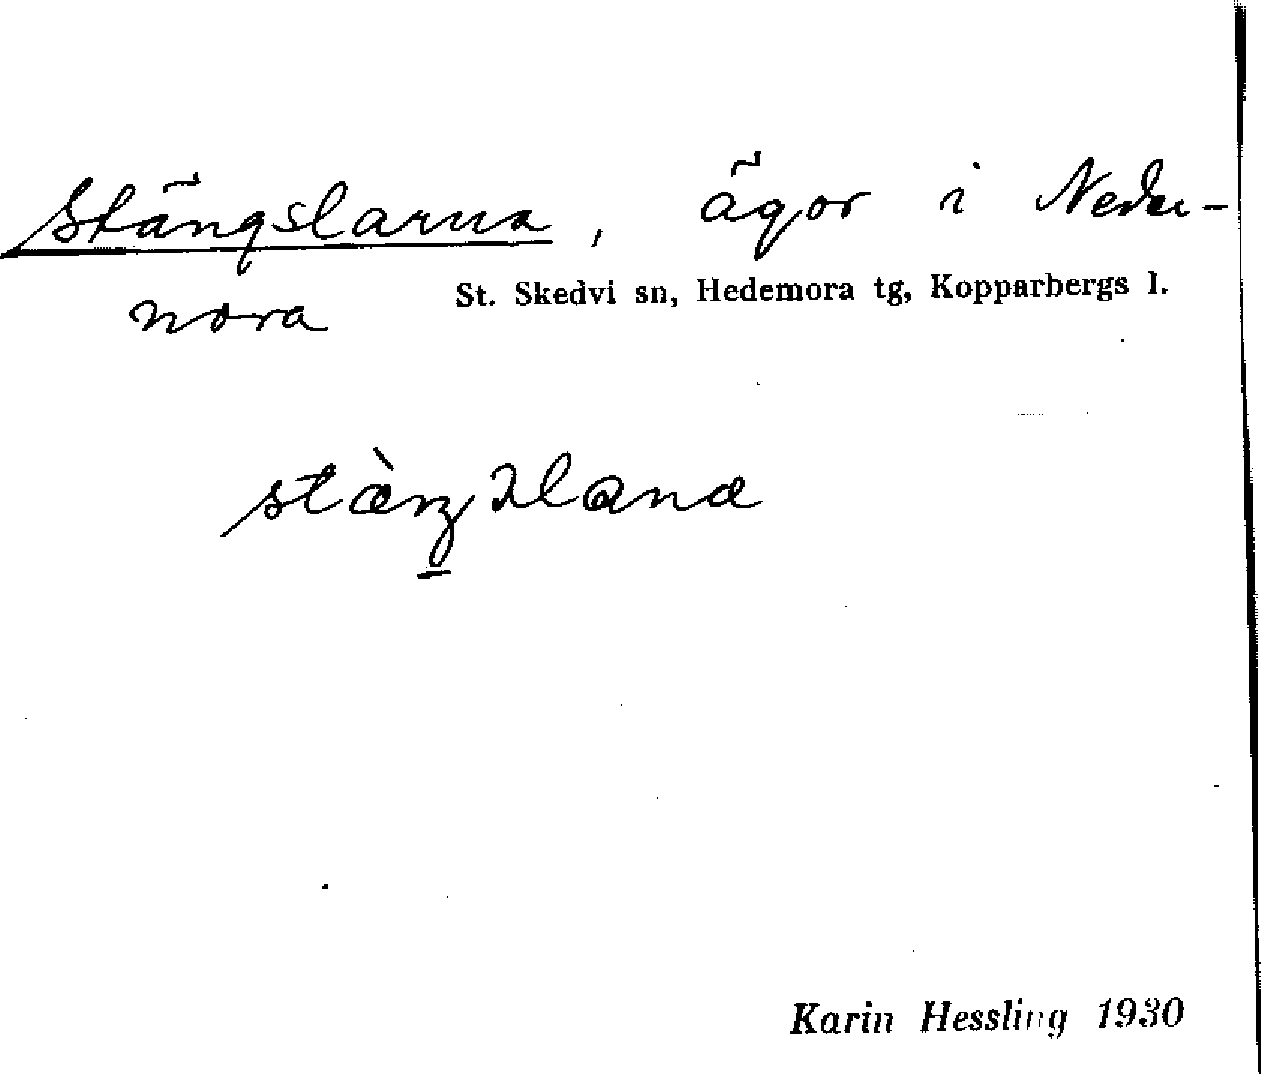 Stängslarna, ägor i Neder-
St. Skedvi sn, Hedemora tg, Kopparbergs l.
nora
Karin Hessling 1930